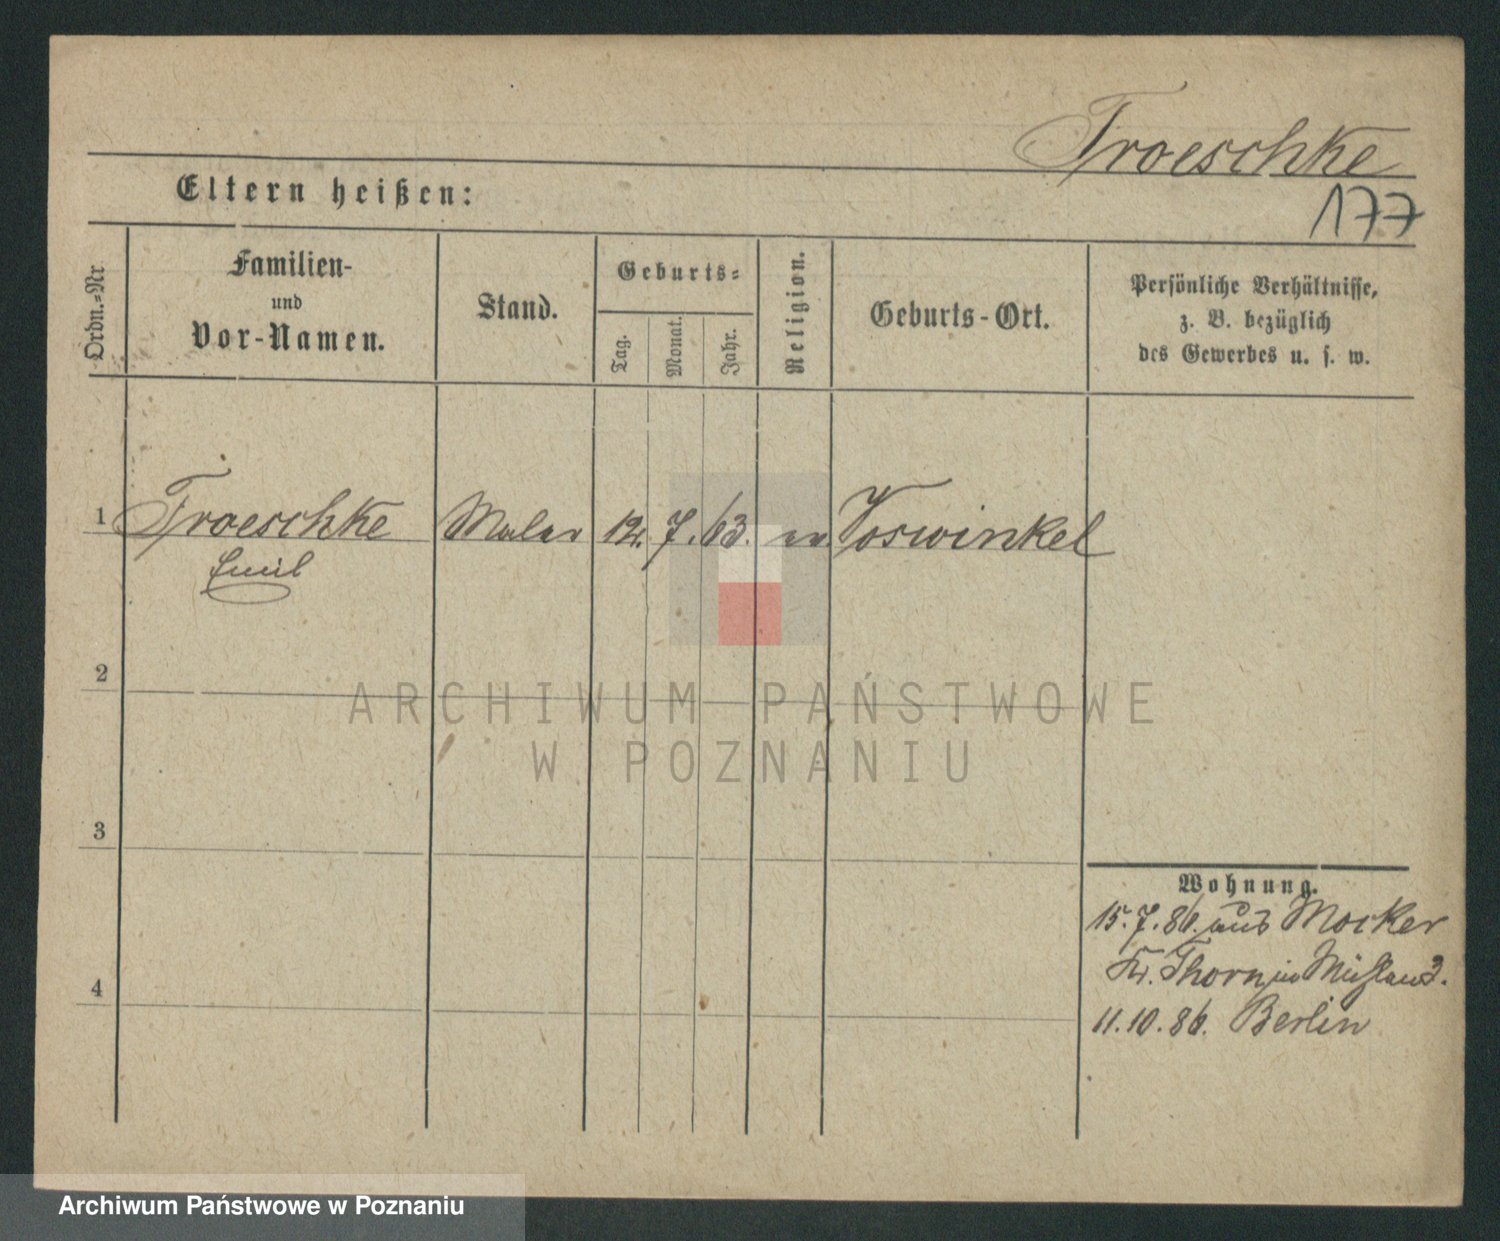 Troeschke
177
Eltern heißen:
Ordn.=Nr.
Familien-
und
Vor-Namen.
Stand.
Geburts=
Tag.
Monat.
Jahr.
Religion.
Geburts-Ort.
Persönliche Verhältnisse,
z. B. bezüglich
des Gewerbes u. s. w.
1 Troeschke Maler 12. 7. 63. ev Voswinkel
Emil
2
ARCHIWUM PAŃSTWOWE
W POZNANIU
3
Wohnung.
15.7.86. aus Mocker
Kr. Thorn in
4
11.10.86. Berlin
Archiwum Państwowe w Poznaniu